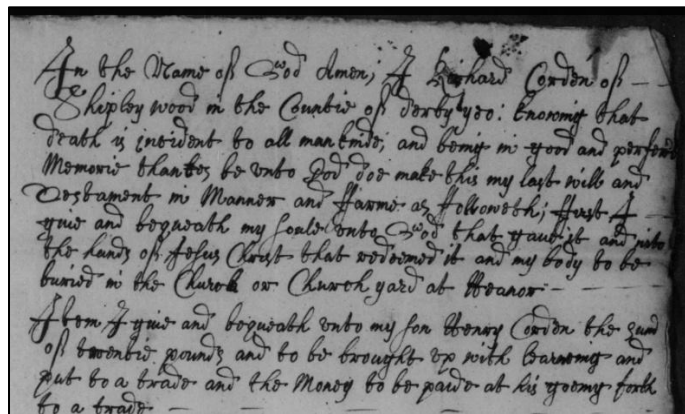 In the Name of God Amen; I Gerhard Corden of
Shipley wood in the Countie of derby yeo: knowing that
death is incident to all mankinde, and being in good and perfect
Memorie thankes be vnto God doe make this my last will and
Testament in Manner and fforme as ffolloweth; ffirst I
giue and bequeath my soule vnto God that gaue it and into
the hands of Jesus Christ that redeemed it and my body to be
buried in the Church or Church yard at Heanor
Item I giue and bequeath vnto my son Henry Corden the sum
of twentie pounds and to be brought vp with learneing and
put to a trade and the Money to be paide at his goeing forth
to a trade